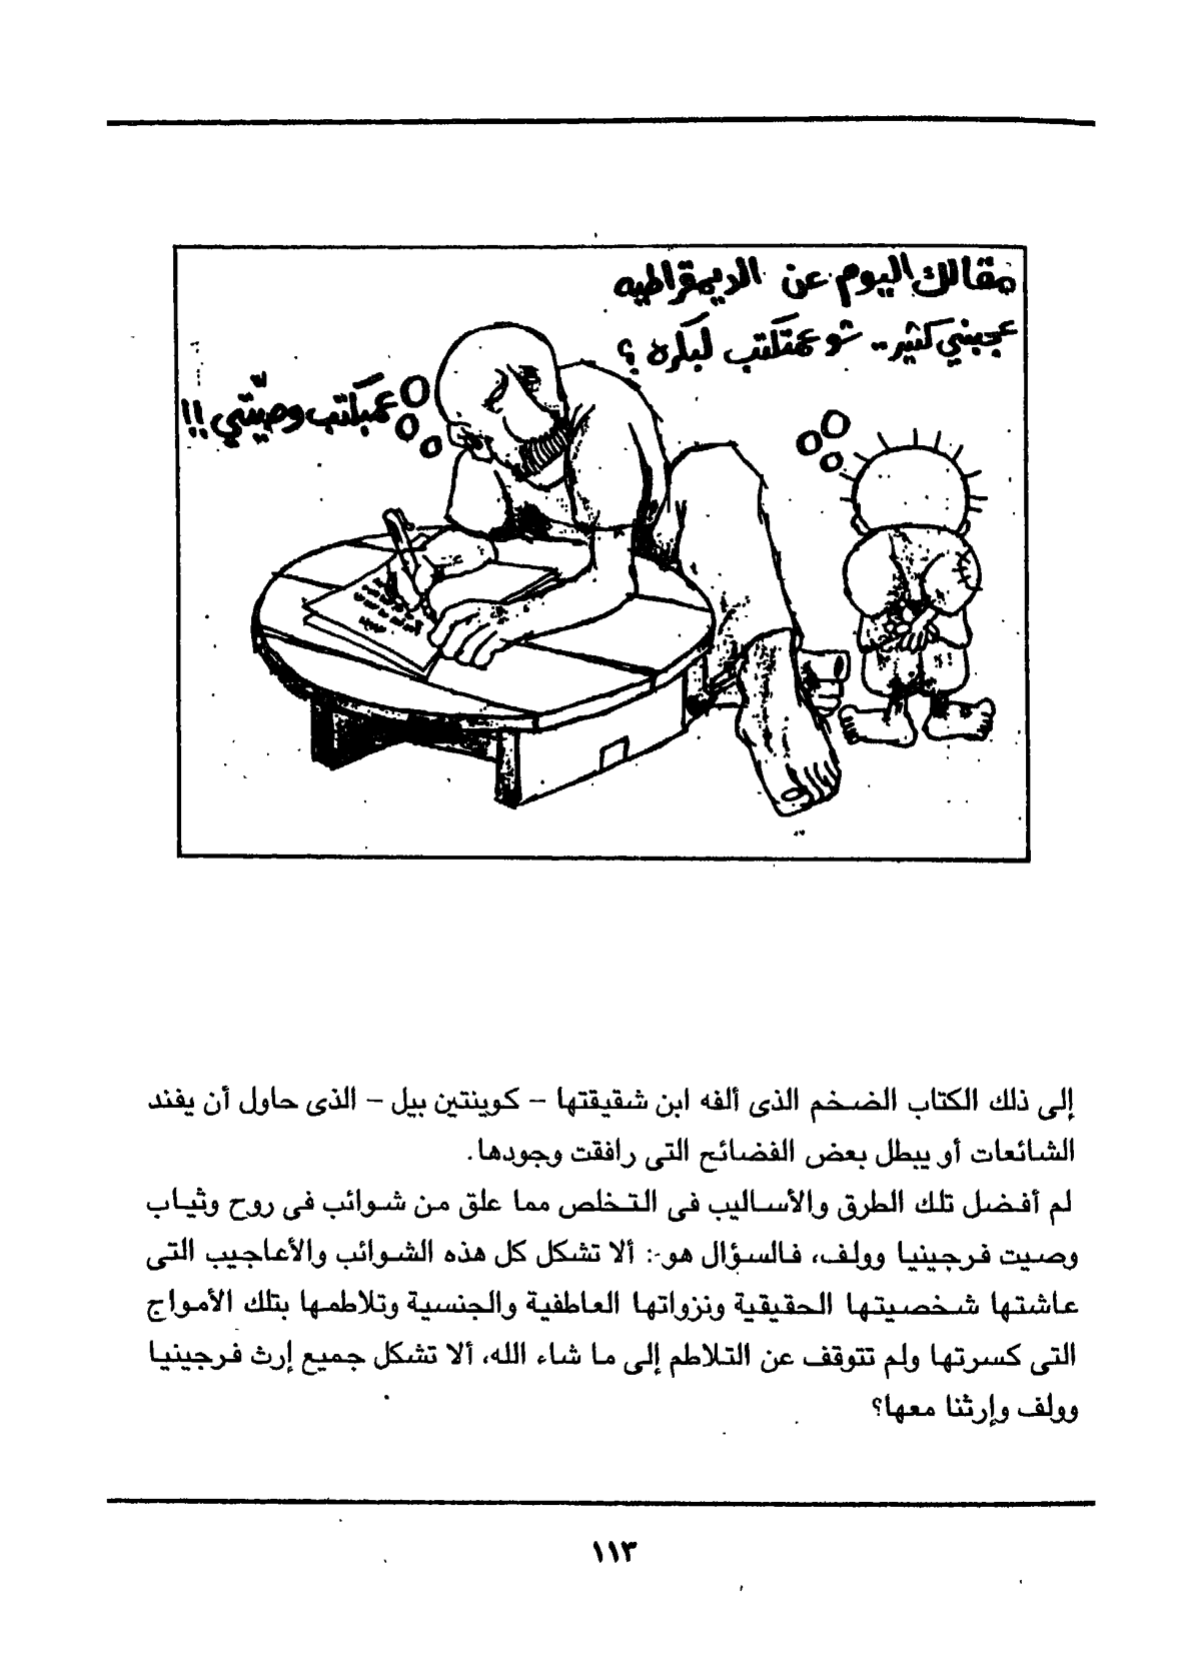 مقالك اليوم عن الديمقراطيه
عجبني كثير.. شو عمتكتب لبكره ؟
عمبكتب وصيّتي !!
إلى ذلك الكتاب الضخم الذى ألفه ابن شقيقتها – كوينتين بيل – الذى حاول أن يفند
الشائعات أو يبطل بعض الفضائح التى رافقت وجودها.
لم أفضل تلك الطرق والأساليب فى التخلص مما علق من شوائب فى روح وثياب
وصيت فرجينيا وولف، فالسؤال هو: ألا تشكل كل هذه الشوائب والأعاجيب التى
عاشتها شخصيتها الحقيقية ونزواتها العاطفية والجنسية وتلاطمها بتلك الأمواج
التى كسرتها ولم تتوقف عن التلاطم إلى ما شاء الله، ألا تشكل جميع إرث فرجينيا
وولف وإرثنا معها؟
١١٣